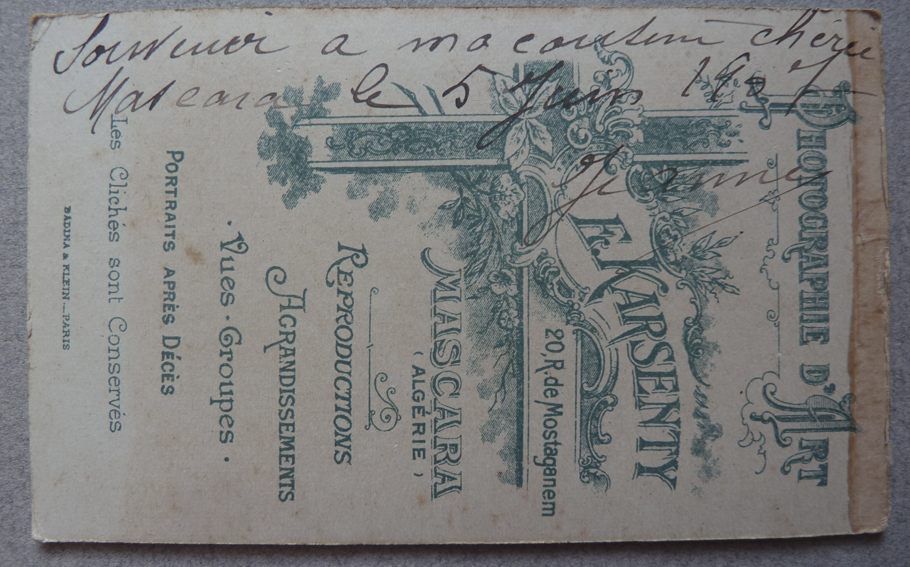 Souvenir a ma cousine chérie
Mascara le 5 Juin 1907
Jeanne
PHOTOGRAPHIE D'ART
E. KARSENTY
20, R. de Mostaganem
MASCARA
(ALGÉRIE)
REPRODUCTIONS
AGRANDISSEMENTS
· VUES · GROUPES ·
PORTRAITS APRÈS DÉCÈS
Les Clichés sont Conservés
BADINA & KLEIN _ PARIS